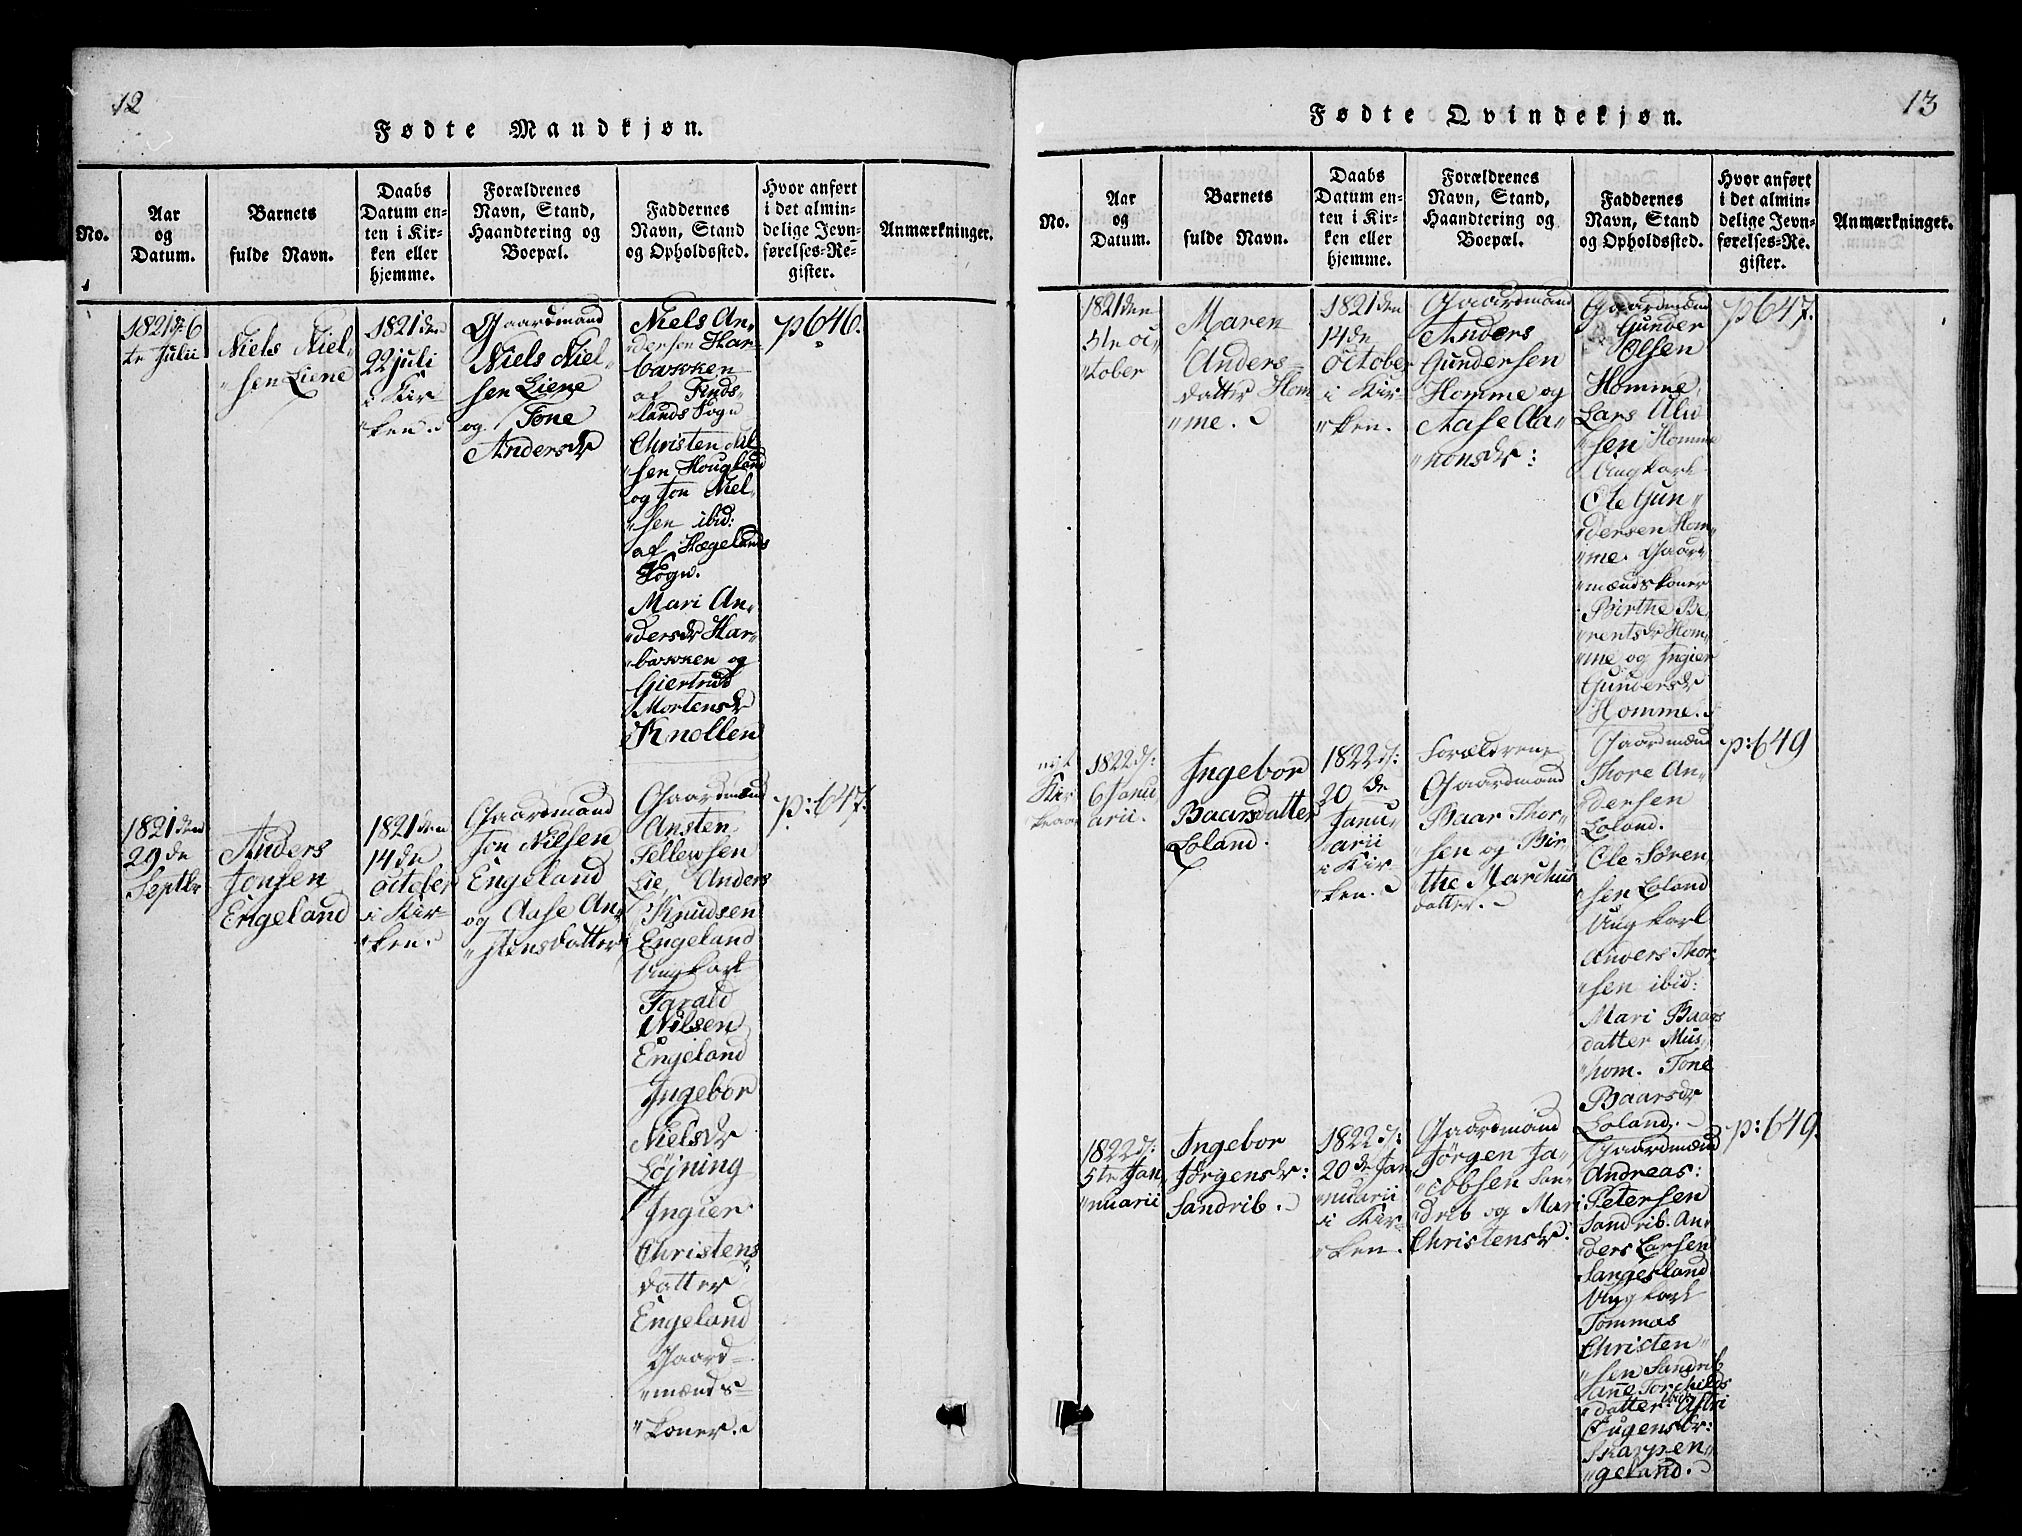 12
Fødte Mandkjøn.
No.
Aar
og
Datum.
Barnets
fulde Navn.
Daabs
Datum en-
ten i Kir-
ken eller
hjemme.
Forældrenes
Navn, Stand,
Haandtering og
Boepæl.
Faddernes
Navn, Stand
og Opholdssted.
Hvor anført
i det almin-
delige Jevn-
førelses-Re-
gister.
Anmærkninger.
1821 d: 6
te Julii
Niels Niel-
"sen Liene
1821 den
22 juli
i Kir-
"ken.
Gaardmand
Niels Niel-
sen Liene
og Tone
Andersdr
Niels An-
"dersen Har-
"bakken
af Finds-
"lands Sogn
Christen Nil-
"sen Hougland
og Jon Niel-
"sen ibid:
af Hægelands
Sogn.
Mari An-
"dersdr Har-
"bakken og
Giertrud
Mortensdr
Knollen
p 646.
1821 den
29 de
Septbr
Anders
Jonsen
Engeland
1821 den
14 de
october
i Kir-
"ken.
Gaardmand
Jon Nilsen
Engeland
og Aase An-
"stensdatter
Gaardmænd
Ansten
Tellewsen
Lie, Anders
Knudsen
Engeland
Ungkarl
Tarald
Nilsen
Engeland
Ingebor
Nielsdr
Løjning
Ingier
Christens
datter
Engeland
Gaard-
"mænds-
"koner.
p: 647.
13
Fødte Qvindekjøn.
No.
Aar
og
Datum.
Barnets
fulde Navn.
Daabs
Datum en-
ten i Kir-
ken eller
hjemme.
Forældrenes
Navn, Stand,
Haandtering og
Boepæl.
Faddernes
Navn, Stand
og Opholdssted.
Hvor anført
i det almin-
delige Jevn-
førelses-Re-
gister.
Anmærkninget.
1821 den
5te oc-
"tober
Maren
Anders-
datter Hom
"me.
1821 den
14 de
october
i Kir-
"ken.
Gaardmand
Anders
Gundersen
Homme og
Aase Aa-
"nonsdr:
Gaardmænd
Gunder
Olsen
Homme,
Lars Alid
"sen Homme
Ungkarl
Ole Gun-
"dersen Hom-
"me. Gaard
"mændskoner
Birthe Be
"rentsdr Hom-
"me og Ingier
Gundersdr
Homme.
p 647.
nyt
Kir
keaar
1822 d:
6 Janu
arii.
Ingebor
Baarsdatter
Loland.
1822 d:
20 de
Janu-
arii
i Kir-
"ken.
Forældrene
Gaardmand
Baar Thor-
"sen og Bir
the Marchus
datter.
Gaardmænd
Thore An-
dersen
Loland.
Ole Sören
"sen Loland
Ungkarl
Anders Thor-
"sen ibid:
Mari Baars
datter Mus-
"hom. Tone
Baarsdr
Loland.
p: 649
1822 d:
5te Jan
"nuarii
Ingebor
Jørgensdr:
Sandrib.
1822 d:
20 de Jan
"nuarii
i Kir-
"ken.
Gaardmand
Jørgen Ja-
"cobsen San-
"drib og Mari
Christensdr.
Gaardmænd
Andreas:
Petersen
Sandrib. An-
"ders Larsen
Sangesland
Ungkarl
Tommas
Christen-
"sen Sandrib
Tarjchilds
"datter ibid: Astri
Skarpen-
"geland.
p: 649.